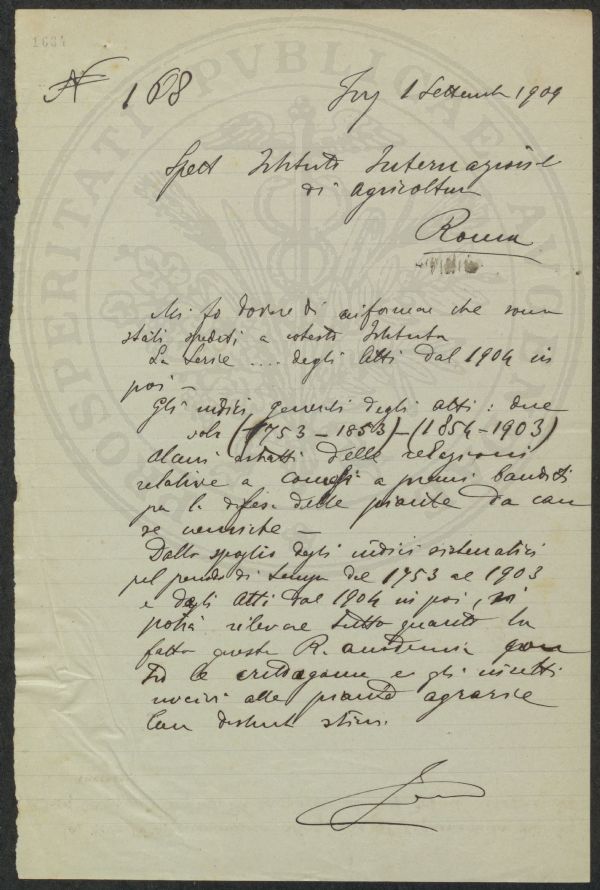 1684
N 168
1 Settembre 1909
Spett Istituto Internazionale
di Agricoltura
Roma
PROSPERITATI PVBLICAE AVGENDAE
Mi fo dovere di informare che sono
stati spediti a codesto Istituto
La serie .... degli Atti dal 1904 in
poi –
Gli indici generali degli atti: due
vols (1753 – 1853) – (1854 – 1903)
Alcuni estratti delle relazioni
relative a a premi banditi
per la difesa delle piante da cau
se nemiche –
Dallo spoglio degli indici sistematici
pel periodo di tempo dal 1753 al 1903
e dagli Atti dal 1904 in poi, si
potrà rilevare tutto quanto ha
fatto questa R. accademia
le crittogame e gli insetti
nocivi alle piante agrarie
Con distinta stima